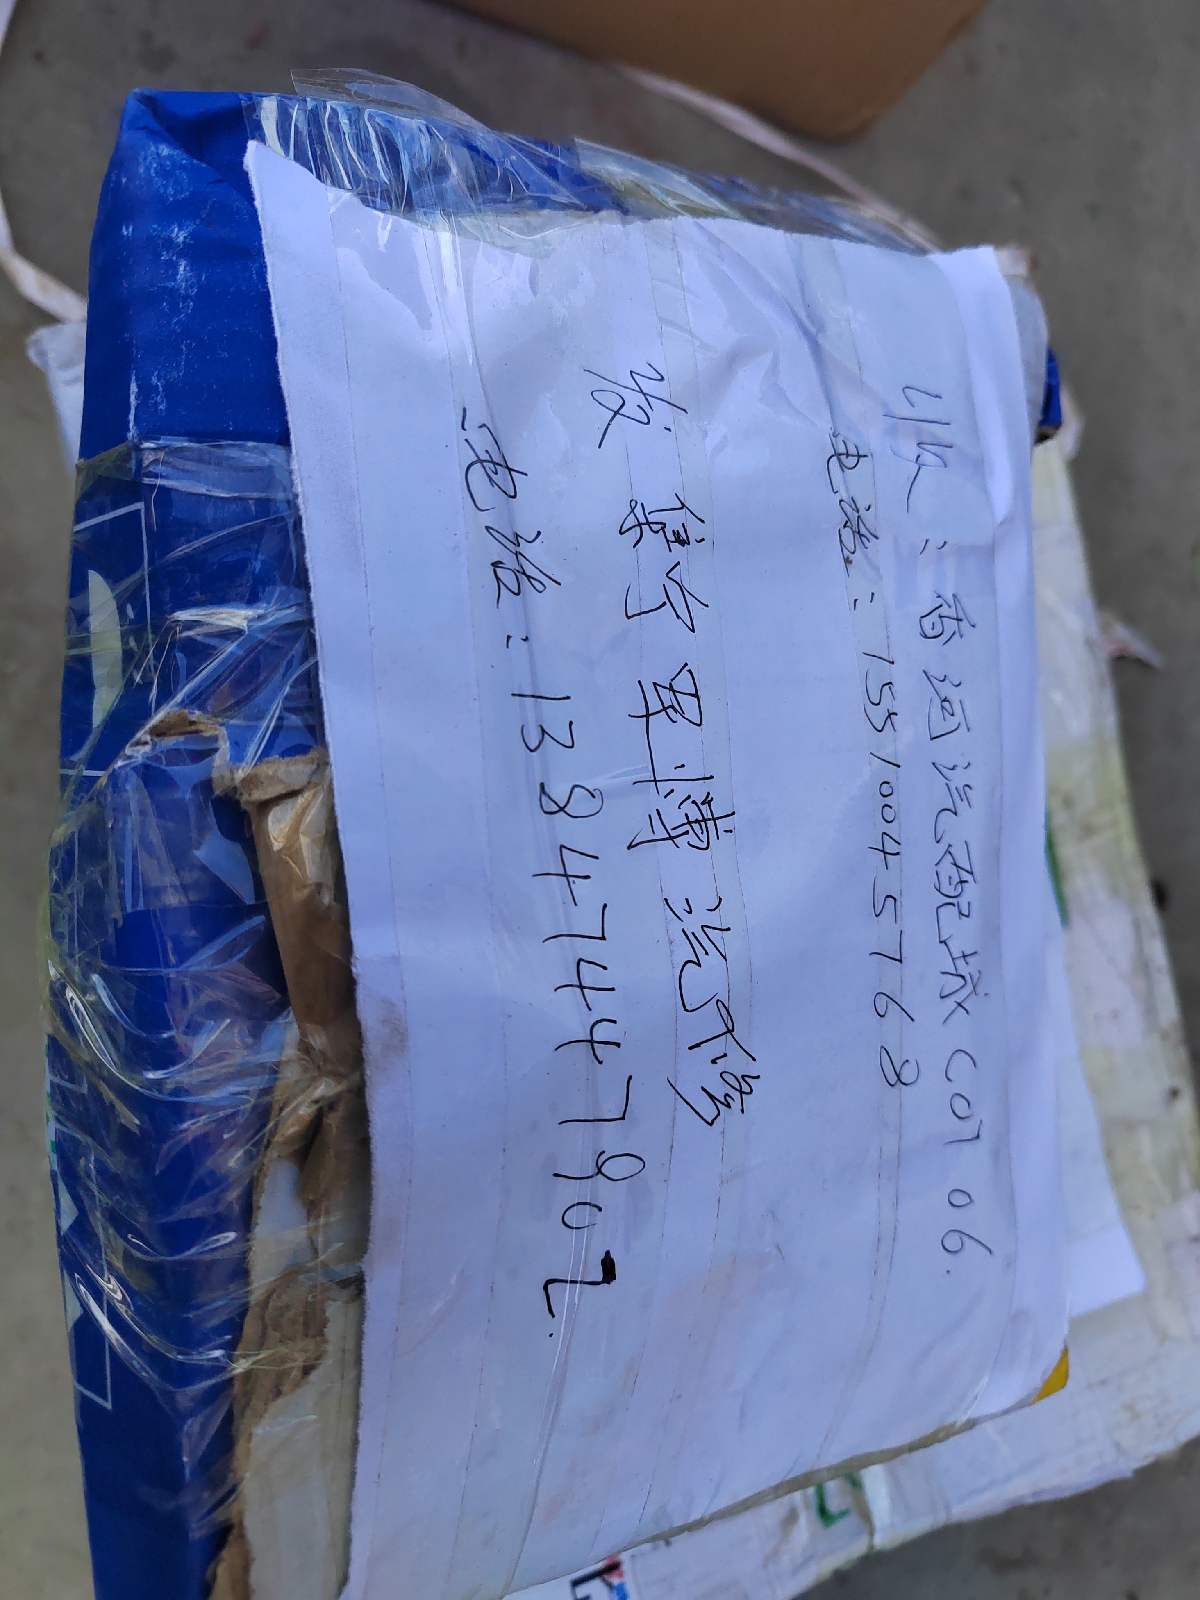 收:香河汽配城C07 06.
电话:15510045768
发 集宁 博汽修
电话:13847447902.